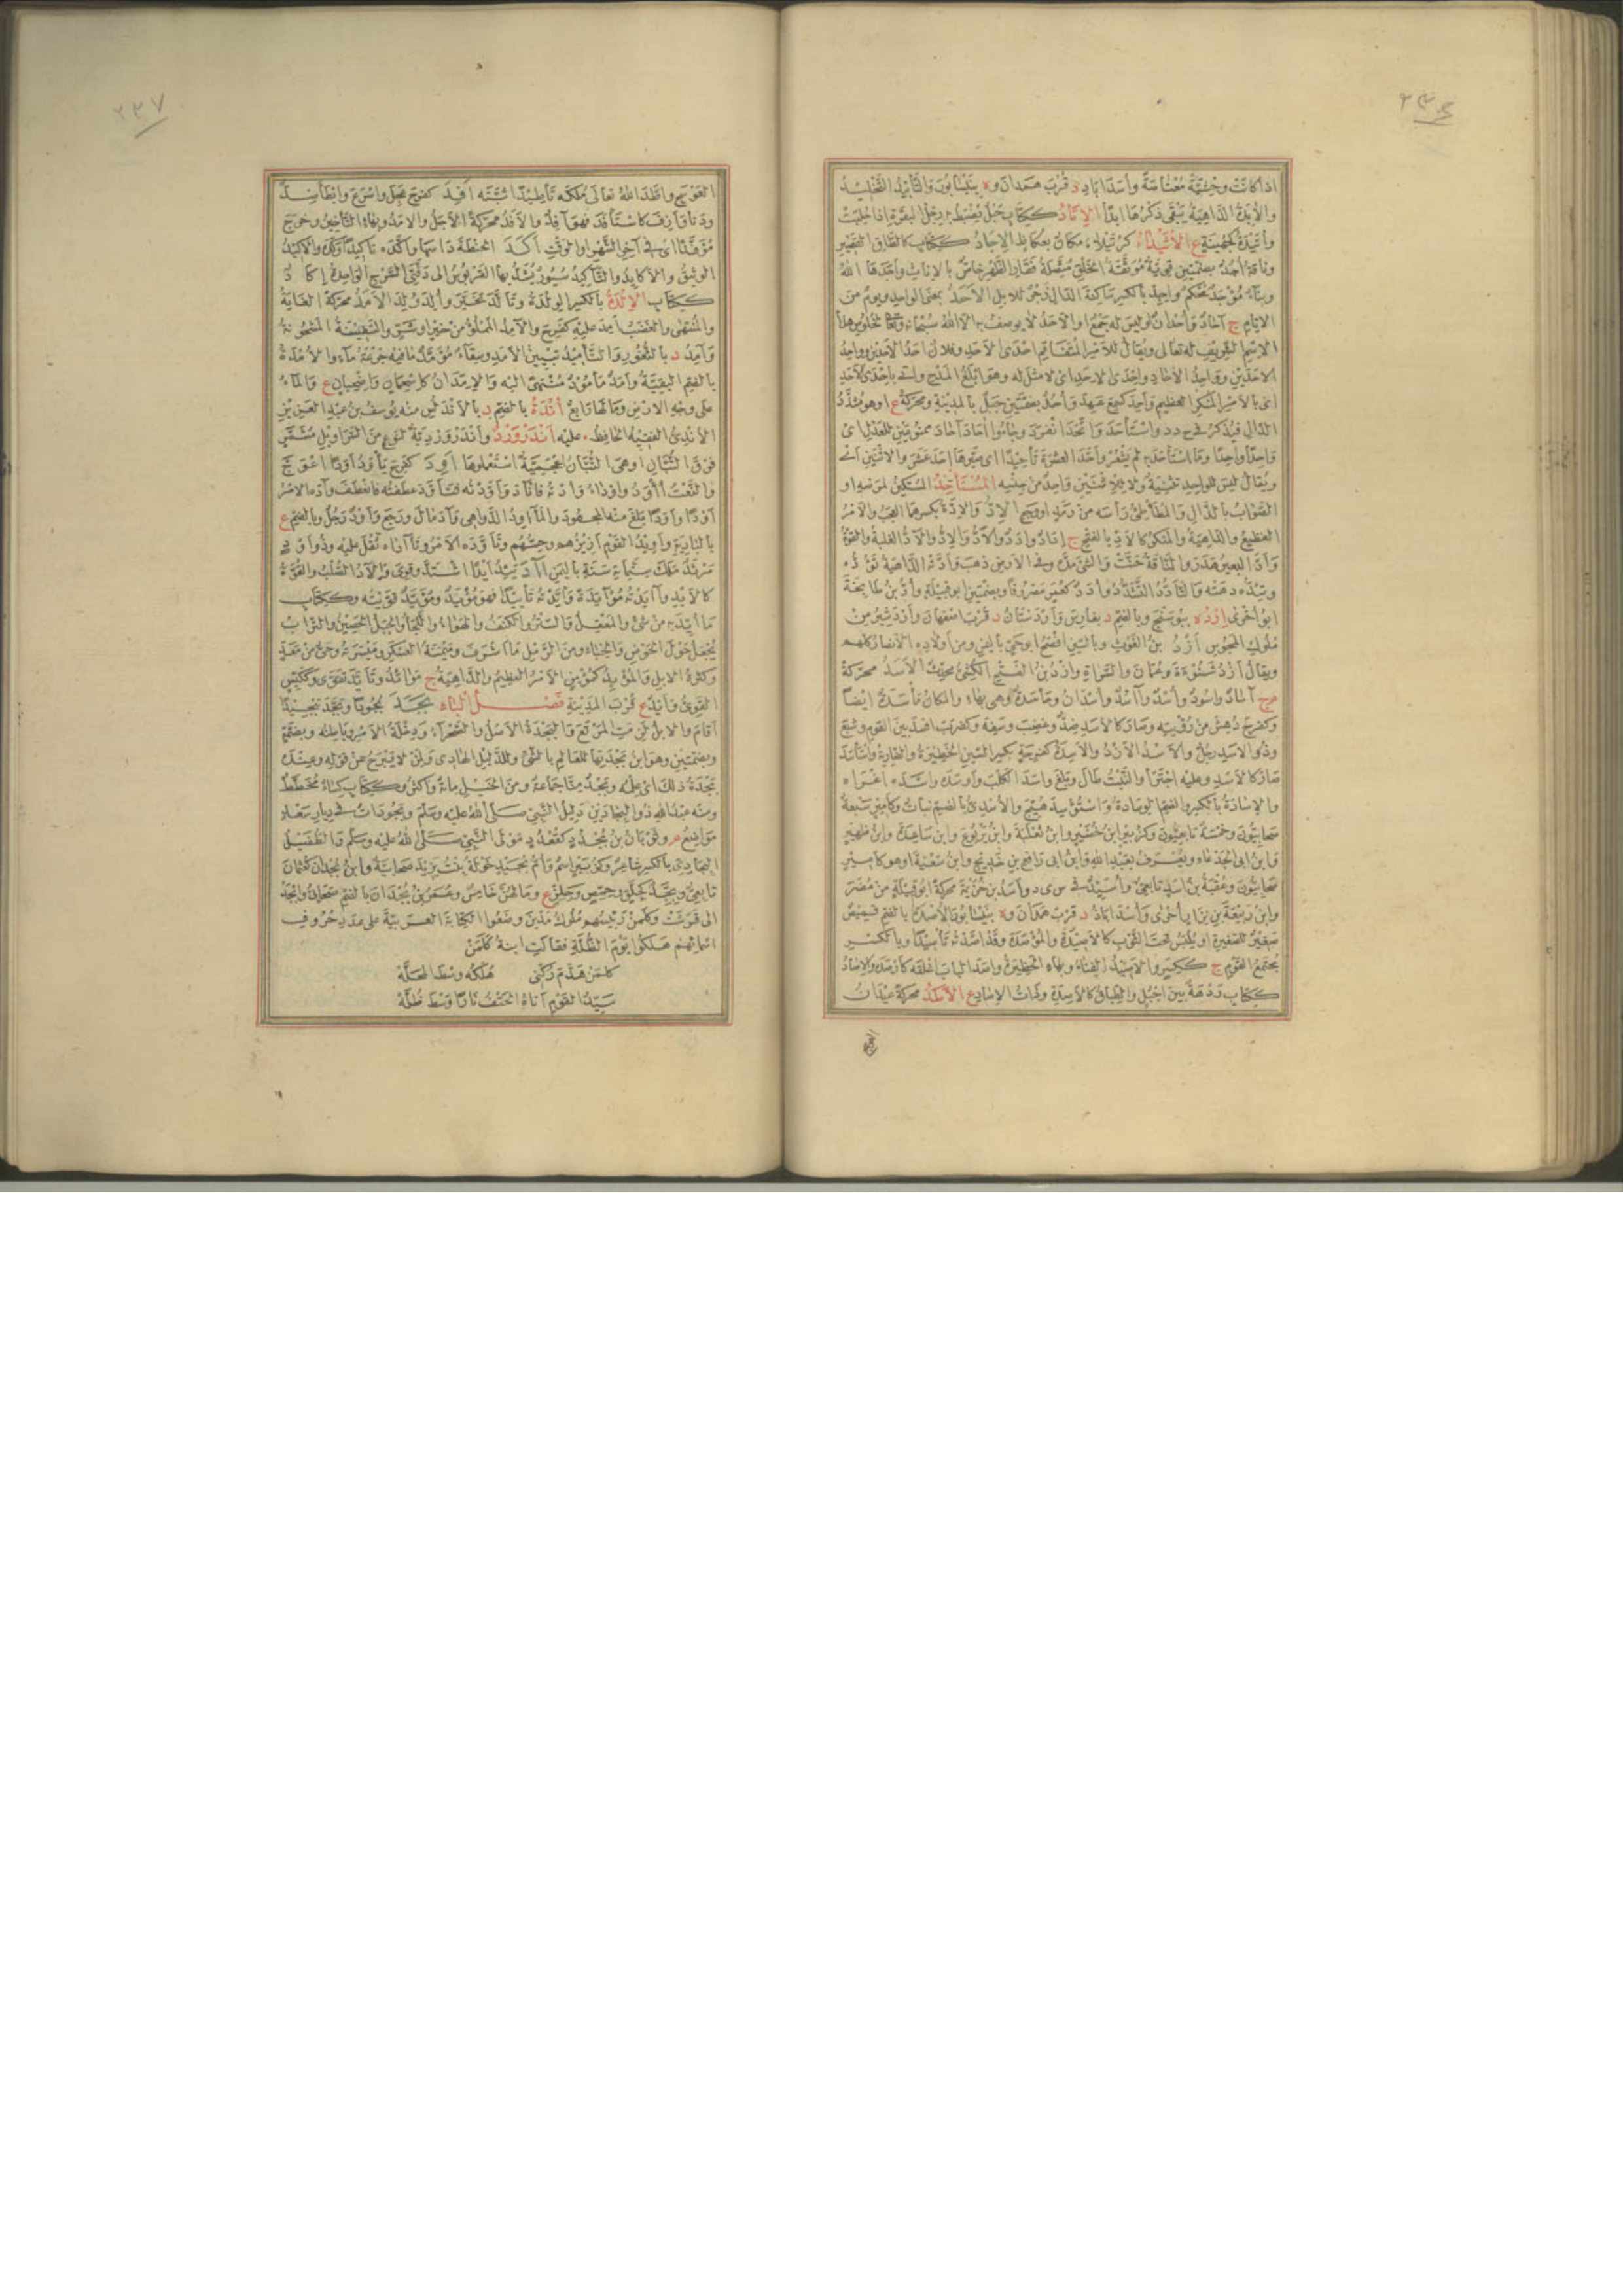 ٢٣٦
اذا كانَتْ وحْشِيَّةً مُعْتاصَةً وأَسَدَابَاذ د قُرْبَ هَمَدانَ وة بنَيْسَابُورَ والتَّأْبِيدُ التَّخْلِيدُ
والآبِدَةُ الدَّاهِيَةُ يَبْقَى ذِكْرُهَا ابَدًا الإِتَادُ ككِتَابٍ حَبْلٌ يُضْبَطُ به رِجْلُ البقَرَةِ اذا حُلِبَتْ
وأُتَيْدَةُ كجُهَيْنَةٍ ع الأُثَيْدَاءُ كرُتَيْلَاءَ مكَانٌ بعُكَاظَ الإِجَادُ ككِتَابٍ كالطَّاقِ القَصِيرِ
وناقَةٌ اُجُدٌ بضمتين قَوِيَّةٌ مُوَثَّقَةُ الخَلْقِ مُتَّصِلَةُ فَقَارِ الظَّهْرِ خاصٌّ بالإناثِ وآجَدَها اللهُ
وبناءٌ مُؤْجَدٌ مُحْكَمٌ واِجِدْ بالكسر ساكنة الدال زجْرٌ للابل الأَحَدُ بمعنى الواحدِ ويومٌ من
الايام ج آحَادٌ وأُحْدَانٌ او ليسَ له جَمْعٌ او الأَحَدُ لا يوصَفُ به الا اللهُ سُبحانه وتعالى لخلوص هذا
الاسم الشريف له تعالى ويقالُ للامر المُتَفاقِم احْدَى الاحَدِ وفلانٌ احَدُ الاحَدِينَ وواحِدُ
الاحَدِينَ وواحِدُ الآحَادِ واِحْدَى الاحَدِ اى لا مِثْلَ له وهو ابْلَغُ المَدْحِ واتَى بإحْدَى الاحَدِ
اى بالامر المُنكَر العظيم وأحِدَ كسَمِعَ عَهِدَ وأُحُدٌ بضمتين جَبَلٌ بالمدينة ومحركةً ع او هو مُشَدَّدُ
الدَّالِ فيُذْكَرُ فى ح د د واسْتَأْحَدَ واتَّحَدَ انْفَرَدَ وجاءُوا أُحَادَ أُحَادَ ممنوعين للعَدْلِ اى
واحِدًا واحِدًا وما اسْتَأْحَدَ به لم يَشْعُرْ وأَحَّدَ العشرَةَ تأحيدًا اى صَيَّرها احَدَ عَشَرَ والاثنين اى
ويُقالُ ليسَ للواحِدِ تَثْنِيَةٌ ولا للاثْنَيْنِ واحِدٌ مِنْ جِنْسِهِ المُسْتَأْخِذُ المُسْتَكِينُ لمَرَضِهِ او
الصَّوَابُ بالذَّالِ والمُطَأْطِئُ رَأْسَه من رمَدٍ او وجَعٍ الإِدُّ والإِدَّةُ بكسرهما العَجَبُ والامْرُ
الفظيعُ والدَّاهِيَةُ والمُنْكَرُ كالاَدِّ بالفتح ج اِدَادٌ واِدَدٌ والاَدُّ والاِدُّ والآدُّ الغلبةُ والقوَّةُ
وأَدَّ البعيرُ هَدَرَ والنَّاقةُ حَنَّتْ والشىءَ مَدَّه وفى الارض ذهَبَ وأَدَّتْه الدَّاهيةُ تَؤُدُّه
وتَئِدُّه دهَتْه والتَّأَدُّدُ التَّشَدُّدُ وأُدَدٌ كعُمَرَ مصْرُوفًا وبضمتين ابو قبيلةٍ وأُدُّ بنُ طابِخَةَ
ابو أُخْرَى اِرْدَه ببُوشَنْجَ وبالضم د بفارِسَ وأَرْدَسْتَانُ د قُرْبَ اصفهانَ وأَرْدَشِيرُ مِنْ
مُلوكِ المَجُوسِ أَزْدُ بنُ الغَوْثِ وبالسين افْصَحُ ابوحَىٍّ باليمن ومن أولادِه الأنصارُ كلُّهم
ويقالُ أزْدُ شَنُوءَةَ وعُمَانَ والسَّراةِ وأزْدُ بنُ الفتحِ الكَشِّىُّ محدِّثٌ الأَسَدُ محركةً
م ج آسَادٌ واُسُودٌ وأُسْدٌ وآسُدٌ وأُسْدَانٌ ومَأْسَدَةٌ وهى بهاء والمكانُ مَأْسَدَةٌ ايضًا
وكفرِحَ دَهِشَ مِنْ رُؤْيتِه وصارَ كالاسدِ ضِدٌّ وغَضِبَ وسَفِهَ وكضَرَبَ افْسَدَ بينَ القومِ وشَبِعَ
وذُو الاسَدِ رجُلٌ والاَسْدُ الاَزْدُ والاَسِدَةُ كفَرِحَةٍ بكسر السين الحَظِيرَةُ والضاريةُ واستأسَدَ
صارَ كالاسَدِ وعليه اجْتَرَأَ والنَّبْتُ طالَ وبلَغَ وآسَدَ الكَلْبَ وأوسَدَه واَسَّدَه اغْرَاه
والإسَادَةُ بالكسر والضم الوِسَادَةُ واسْتُؤْسِدَ هُيِّجَ والأُسْدِىُّ بالضم نباتٌ وكأمير سبعةُ
صحابيُّونَ وخمْسَةٌ تابعيُّونَ وكزُبَيْرٍ ابنُ حُضَيْرٍ وابنُ ثعْلَبَةَ وابنُ يَرْبُوعٍ وابنُ ساعِدَةَ وابنُ ظُهَيْرٍ
وابنُ ابى الجَدْعاءِ ويُعْرَفُ بعَبْدِ اللهِ وابنُ اخى رافِع بنِ خَدِيجٍ وابنُ سَعْيَةَ او هو كأميرٍ
صحابيُّونَ وعُقْبَةُ بنُ اُسَيْدٍ تابعىٌّ وأُسَيِّدٌ فى س ى د وأسَدُ بنُ خُزَيْمَةَ محركةً ابو قبيلةٍ من مُضَرَ
وابنُ رَبِيعَةَ بنِ نِزارٍ أُخرَى وأسَدَاباذُ د قربَ هَمَذَانَ وة بنَيْسَابُورَ الأُصْدَةُ بالضم قَميصٌ
صغيرٌ للصغيرةِ او يُلْبَسُ تحتَ الثَّوْبِ كالاَصِيدَةِ والمُؤَصَّدَةِ وقد اَصَّدْتُه تأصِيدًا وبالكَسْرِ
مُجْتَمَعُ القَوْمِ ج ككِسَرٍ والاَصِيدُ الفِنَاءُ وبهاء الحَظِيرَةُ وآصَدَ البابَ اغْلَقَه كأوْصَدَه والاِصَادُ
ككِتَابٍ رَدْهَةٌ بينَ اَجْبُلٍ والطِّبَاقُ كالاَصِدَةِ وذاتُ الاِصَادِ ع الأَطَدُ محركةً عِيدَانُ
العوسج
٢٣٧
العَوْسَجِ واَطَّدَ اللهُ تعالى مُلْكَه تأطِيدًا ثَبَّتَه أَفِدَ كفرِحَ عَجِلَ واَسْرَعَ واَبْطَأ ضِدٌّ
ودَنَا وأزِفَ كاسْتَأْفَدَ فهو أَفِدٌ والأَفَدُ محركةً الأَجَلُ والأَمَدُ وبهاءٍ التَّأْخِيرُ وخرَجَ
مُؤْفِدًا اى فى آخِرِ الشَّهْرِ او الوَقتِ أَكَدَ الحِنْطَةَ دَاسَهَا واَكَّدَه تأكيدًا وَكَّدَه والاَكِيدُ
الوَثِيقُ والاَكايِدُ والتَّآكِيدُ سُيُورٌ يُشَدُّ بها القَرَبُوسُ الى دَفَّتَىِ السَّرْجِ الواحِدُ إِكَادٌ
ككِتَابٍ الإِلْدَةُ بالكسر الوِلْدَةُ وتأَلَّدَ تحَيَّرَ وأُلِدَ وُلِدَ الأَمَدُ محركةً الغايَةُ
والمُنْتَهى والغَضَبُ اَمِدَ عليه كفرِحَ والآمِدُ المَمْلُوُّ مِنْ خَيْرٍ او شَرٍّ والسَّفِينَةُ المَشْحُونَةُ
وآمِدُ د بالثُّغُورِ والتَّأْمِيدُ تبيينُ الأَمَدِ وسِقَاءٌ مُؤَمَّدٌ ما فيه جُرْعَةُ ماءٍ والأُمْدَةُ
بالضم البقيَّةُ وأَمَدٌ مَأْمُودٌ مُنْتَهًى اليه والإِمِّدَانُ كإسْحِمَانٍ واِضْحِيَانٍ ع والماءُ
على وجْهِ الارضِ وما لها رابعٌ أَنْدَةُ بالضم د بالأَندَلُسِ منه يُوسُفُ بنُ عبدِ العزيزِ
الأُنْدِىُّ الفَقِيهُ الحافِظُ عليه أَنْدَرْوَرْدُ وأَنْدَرْوَرْدِيَّةٌ لنَوْعٍ منَ السَّراوِيلِ مُشَمَّرٍ
فوقَ التُّبَّانِ او هى التُّبَّانُ عَجَمِيَّةٌ اسْتَعْمَلُوها أَوِدَ كفرِحَ يأْوَدُ أَوَدًا اعْوَجَّ
والنَّعْتُ أَأْوَدُ وأَوْدَاءُ وأُدْتُه فانْآدَ وأَوَّدْتُه فتَأَوَّدَ عطَفْتُه فانعَطَفَ وآدَه الامْرُ
أَوْدًا وأُوودًا بلَغَ منه المجهودَ والمَآوِدُ الدَّواهِى وآدَ مَالَ ورَجَعَ وأَوْدٌ رَجُلٌ وبالضم ع
بالبَادِيَةِ وأَوِيدُ القَوْمِ أَزِيزُهم وحِسُّهم وتأَوَّدَه الامْرُ وتآدَاه ثَقُلَ عليه وذُو أَوْدٍ
مَرْثَدٌ مَلَكَ سِتَّمِائَةِ سَنَةٍ باليَمَنِ آدَ يَئِيدُ أَيْدًا اشْتَدَّ وقَوِىَ والآدُ الصُّلْبُ والقُوَّةُ
كالأَيْدِ وآيَدْتُه مُؤَايَدَةً وأَيَّدْتُه تأْيِيدًا فهو مُؤْيَدٌ ومُؤَيَّدٌ قَوَّيْتُه وككِتَابٍ
ما أُيِّدَ به مِنْ شىءٍ والمَعْقِلُ والسِّتْرُ والكَنَفُ والهَوَاءُ واللَّجَأُ والجبلُ الحَصِينُ والتُّرَابُ
يُجْعَلُ حَوْلَ الحَوْضِ والخِبَاءِ ومِنَ الرَّمْلِ ما اَشْرَفَ ومَيْمَنَةُ العَسْكَرِ ومَيْسَرَتُه وحَىٌّ من مَعَدٍّ
وكَثْرَةُ الابِلِ والمُؤْيِدُ كمُؤْمِنٍ الأَمْرُ العظيمُ والدَّاهِيَةُ ج مَوَائِدُ وتأَيَّدَ تَقَوَّى وككَيِّسٍ
القَوِىُّ وأَيْدٌ ع قُرْبَ المَدِينَةِ فَصْلُ البَاءِ بَجَدَ بُجُودًا وبَجَّدَ تَبْجِيدًا
أقامَ والابِلُ لَزِمَتِ المَرْتَعَ والبَجْدَةُ الأَصْلُ والصَّحْرَاءُ ودِخْلَةُ الامْرِ وبَاطِنُه وبضمَّةٍ
وبضمتين وهو ابنُ بَجْدَتِهَا للعَالِمِ بالشىءِ وللدَّلِيلِ الهَادِى ولِمَنْ لا يَبْرَحُ عن قولِه وعِنْدَه
بَجْدَةُ ذلكَ اى عِلْمُه وبَجْدٌ مِنَّا جَمَاعَةٌ ومنَ الخَيْلِ مِائَةٌ فاكثَرُ وككِتَابٍ كِسَاءٌ مُخَطَّطٌ
ومنه عبدُ اللهِ ذُو البِجَادَيْنِ دَلِيلُ النَّبِىِّ صلَّى اللهُ عليه وسلَّمَ وبُجُودَاتٌ فى دِيَارِ سَعْدٍ
مواضِعُ م وثَوْبَانُ بنُ بُجْدُدٍ كقُعْدُدٍ مَوْلَى النَّبِىِّ صلَّى اللهُ عليه وسلَّمَ والطُّفَيْلُ
البِجَادِىُّ بالكسر شاعِرٌ وكزُبَيْرٍ اسمٌ وأُمُّ بُجَيْدٍ خَوْلَةُ بنْتُ يَزِيدَ صحابيَّةٌ وابنُ بُجْدَانَ كعُثْمَانَ
تابعىٌّ وبِجِّدٌ كجِلِّقٍ وحِمِّصٍ وحِلِّزٍ ع وما لهُنَّ خامِسٌ وعَمْرُو بنُ بُجْدَانَ بالضم صحابىٌّ وأَبْجَدْ
الى قَرَشَتْ وكَلَمُنْ رَئِيسُهم مُلُوكُ مَدْيَنَ وضَعُوا الكِتَابَةَ العَرَبِيَّةَ على عَدَدِ حُرُوفِ
اَسْمَائِهِم هَلَكُوا يَوْمَ الظُّلَّةِ فقالتِ ابْنَةُ كَلَمُنْ
كَلَمُنْ هَدَّمَ رُكْنِى هُلْكُه وسْطَ المَحَلَّهْ
سَيِّدُ القَوْمِ أَتَاهُ الحَتْفُ نَارًا وَسْطَ ظُلَّهْ